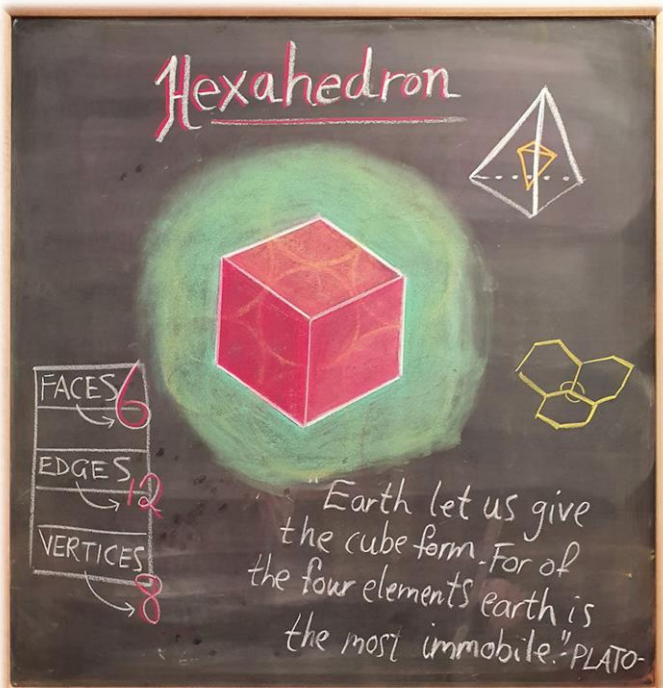 Hexahedron
FACES 6
EDGES 12
VERTICES
8
"Earth let us give
the cube form. For of
the four elements earth is
the most immobile." -PLATO-